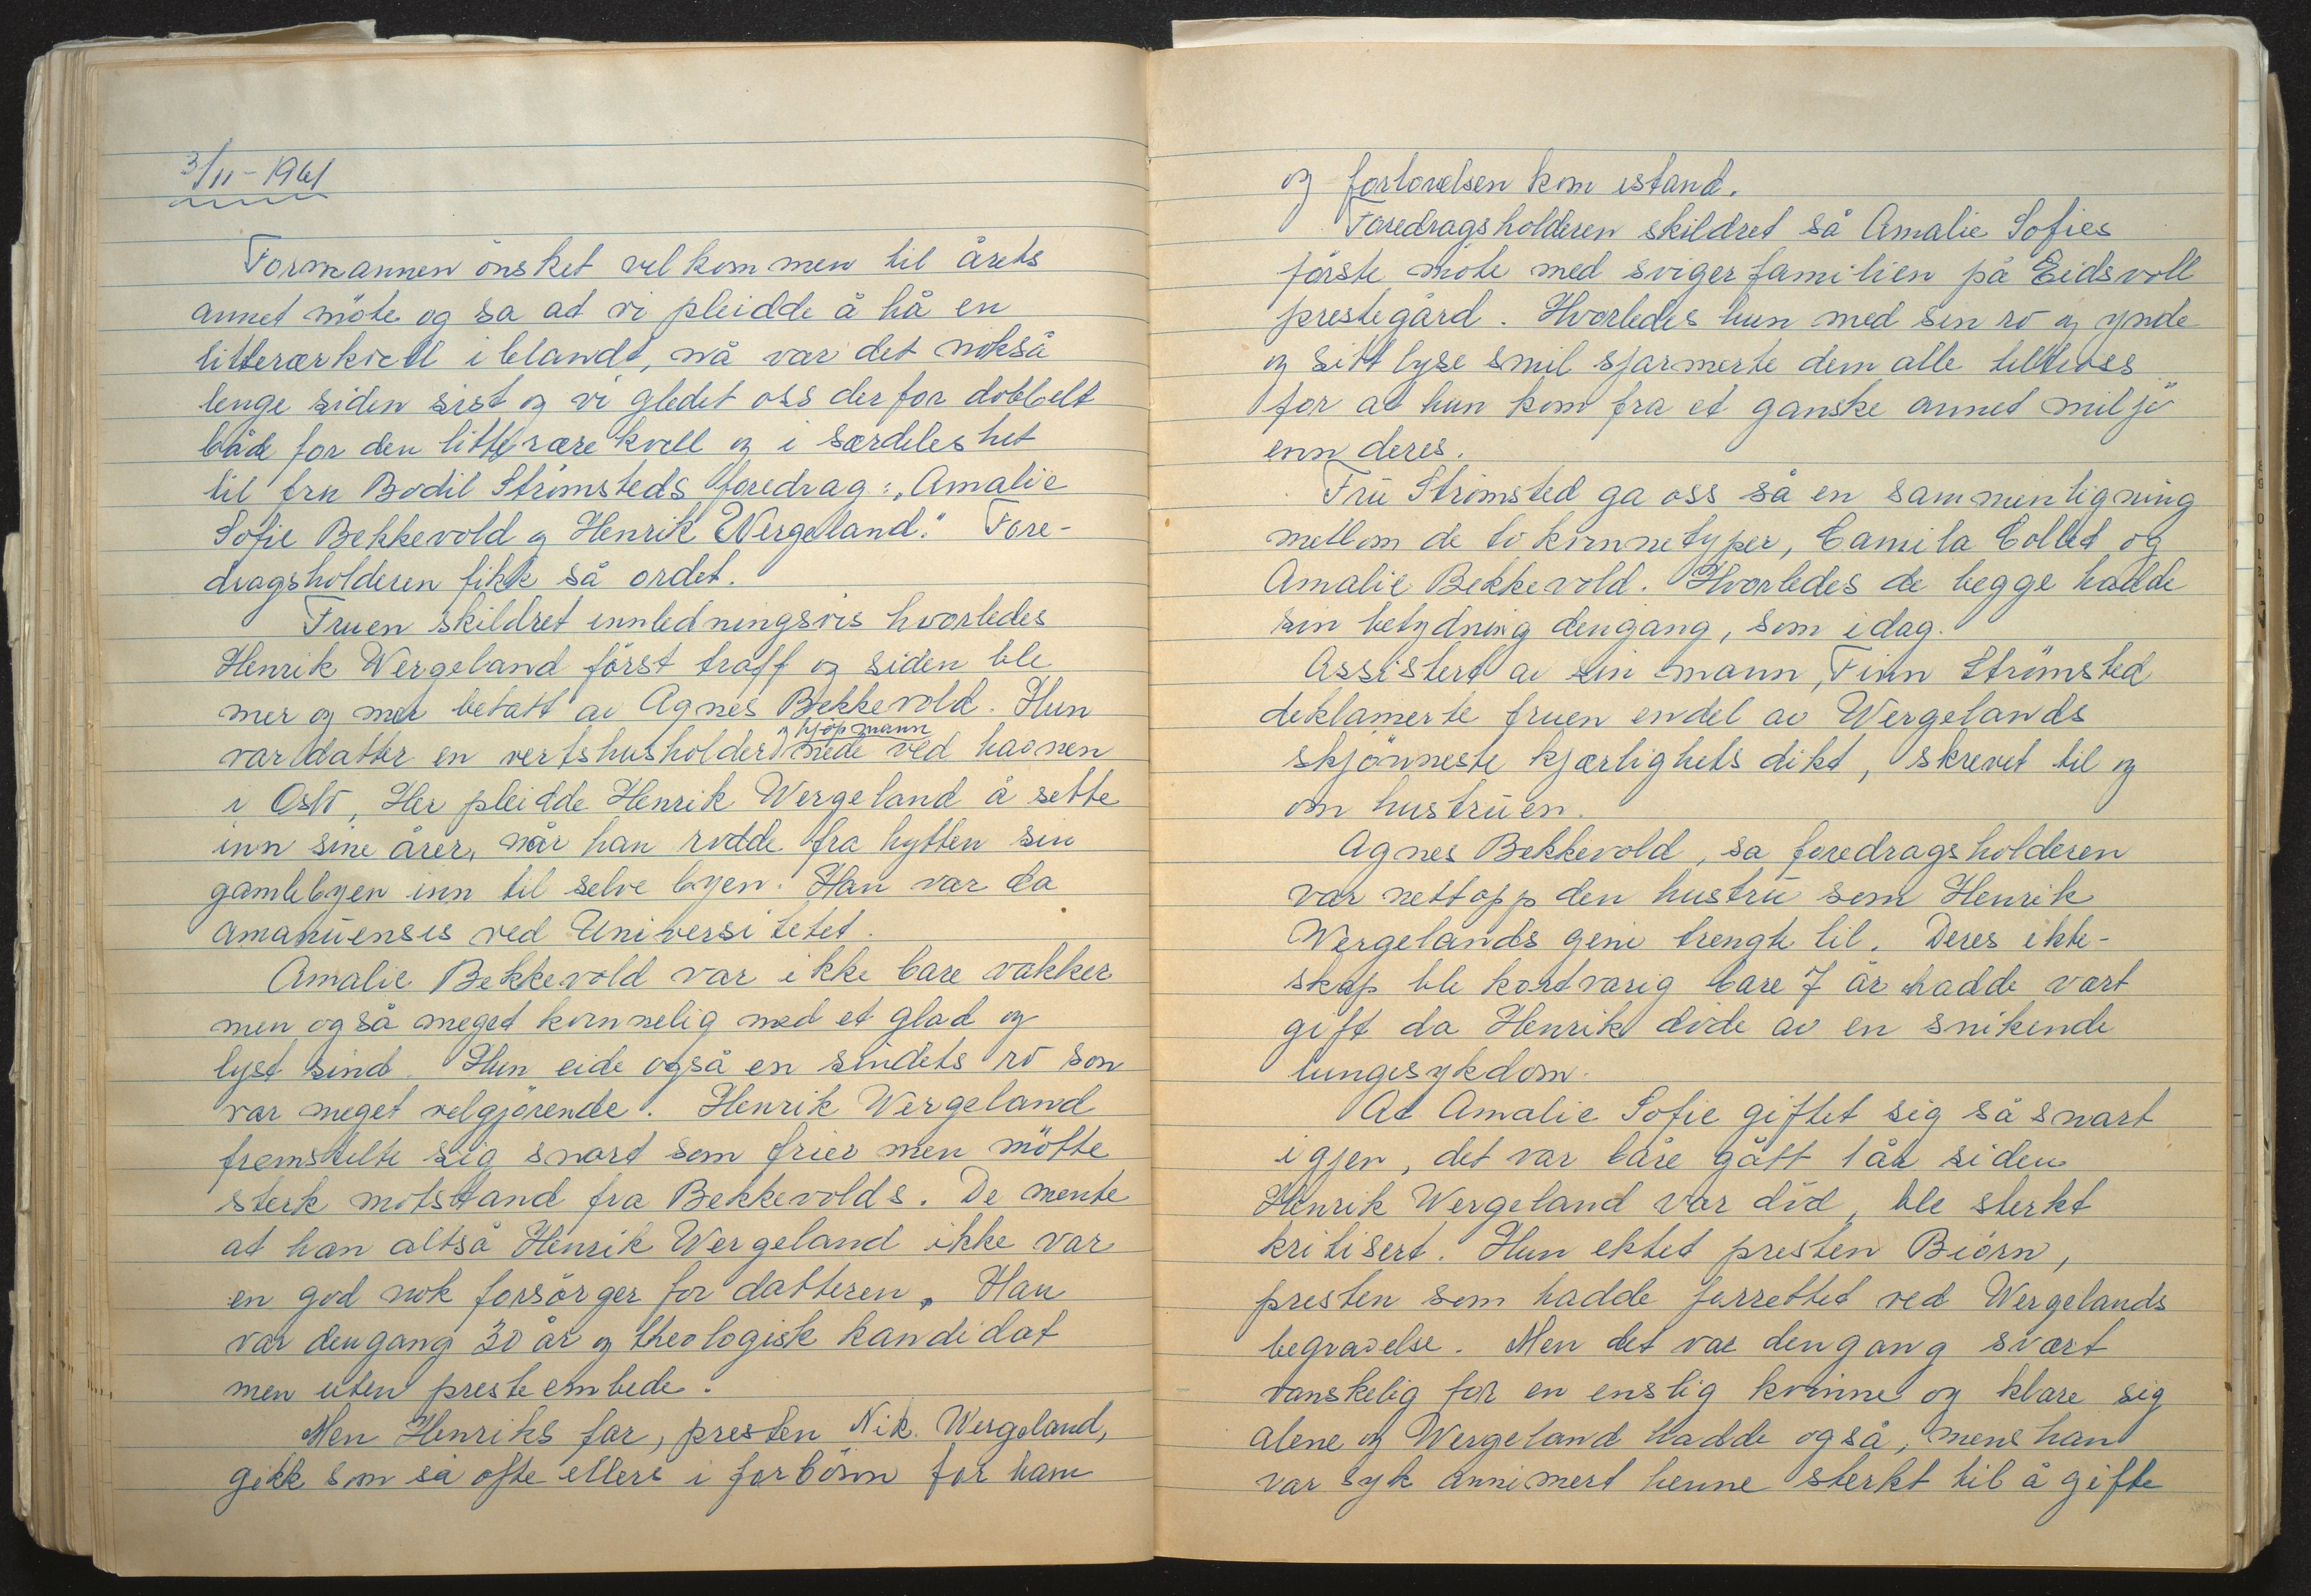 3/11-1961
Formannen önsket velkommen til årets
annet möte og sa at vi pleidde å hå en
litterærkvell iblandt, nå var det nokså
lenge siden sist og vi gledet oss derfor dobbelt
både for den litterære kvell og i særdeleshet
til fru Bodil Strömsteds foredrag: „Amalie
Sofie Bekkevold og Henrik Wergeland." Fore-
dragsholderen fikk så ordet.
Fruen skildret innledningsvis hvorledes
Henrik Wergeland först traff og siden ble
mer og mer betatt av Agnes Bekkevold. Hun
og kjöpmann
var datter en vertshusholder nede ved havnen
i Oslo, Her pleidde Henrik Wergeland å sette
inn sine årer, når han rodde fra hytten sin
gamlebyen inn til selve byen. Han var da
amanuensis ved Universitetet.
Amalie Bekkevold var ikke bare vakker
men også meget kvinnelig med et glad og
lyst sind. Hun eide også en sindets ro som
var meget velgjörende. Henrik Wergeland
fremstelte sig snart som frier men mötte
sterk motstand fra Bekkevolds. De mente
at han altså Henrik Wergeland ikke var
en god nok forsörger for datteren. Han
var dengang 30 år og theologisk kandidat
men uten presteembede.
Men Henriks far, presten Nik. Wergeland,
gikk som så ofte ellers i forbönn for ham
og forlovelsen kom istand.
Foredragsholderen skildret så Amalie Sofies
förste möte med svigerfamilien på Eidsvoll
prestegård. Hvorledes hun med sin ro og ynde
og sitt lyse smil sjarmerte dem alle tiltross
for at hun kom fra et ganske annet miljö
enn deres.
Fru Strömsted ga oss så en sammenligning
mellom de to kvinnetyper, Camila Collet og
Amalie Bekkevold. Hvorledes de begge hadde
sin betydning dengang, som idag.
Assistert av sin mann, Finn Strömsted
deklamerte fruen endel av Wergelands
skjönneste kjærlighets dikt, skrevet til og
om hustruen.
Agnes Bekkevold, sa foredragsholderen
var nettopp den hustru som Henrik
Wergelands geni trengte til. Deres ekte-
skap ble kortvarig bare 7 år hadde vært
gift da Henrik döde av en snikende
lungesykdom.
At Amalie Sofie giftet sig så snart
igjen, det var bare gått 1 år siden
Henrik Wergeland var död, ble sterkt
kritisert. Hun ektet presten Biörn,
presten som hadde forrettet ved Wergelands
begravelse. Men det var dengang svært
vanskelig for en enslig kvinne og klare sig
alene og Wergeland hadde også, mens han
var syk annimert henne sterkt til å gifte